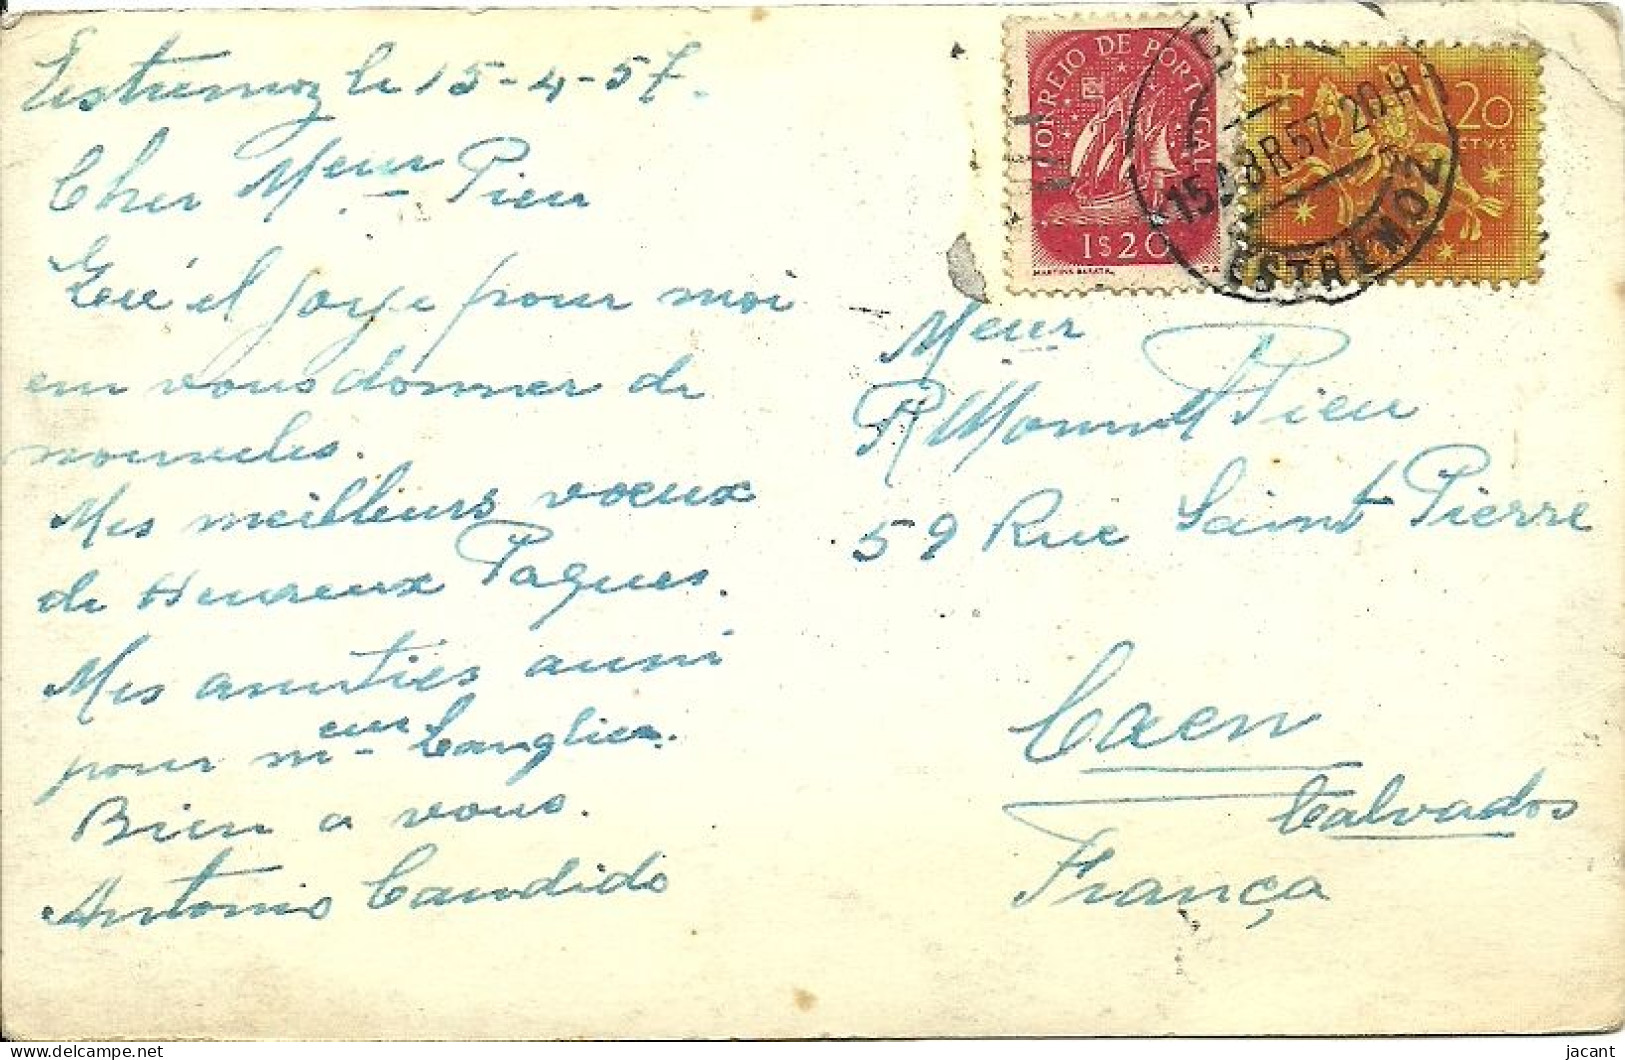 Estremoz le 15-4-57.
Cher Meur Pieu
Que'el joye pour moi
em vous donner de
nouveles.
Mes meilleurs voeux
de Heureux Paques.
Mes amities aussi
pour meur Langlier.
Bien a vous.
Antonio Candido
CORREIO DE PORTUGAL
1$20
MARTINS BARATA
20
CTVS.
15 ABR 57 20 H
ESTREMOZ
Meur
R Monnet Pieu
59 Rue Saint Pierre
Caen
Calvados
França
jacant